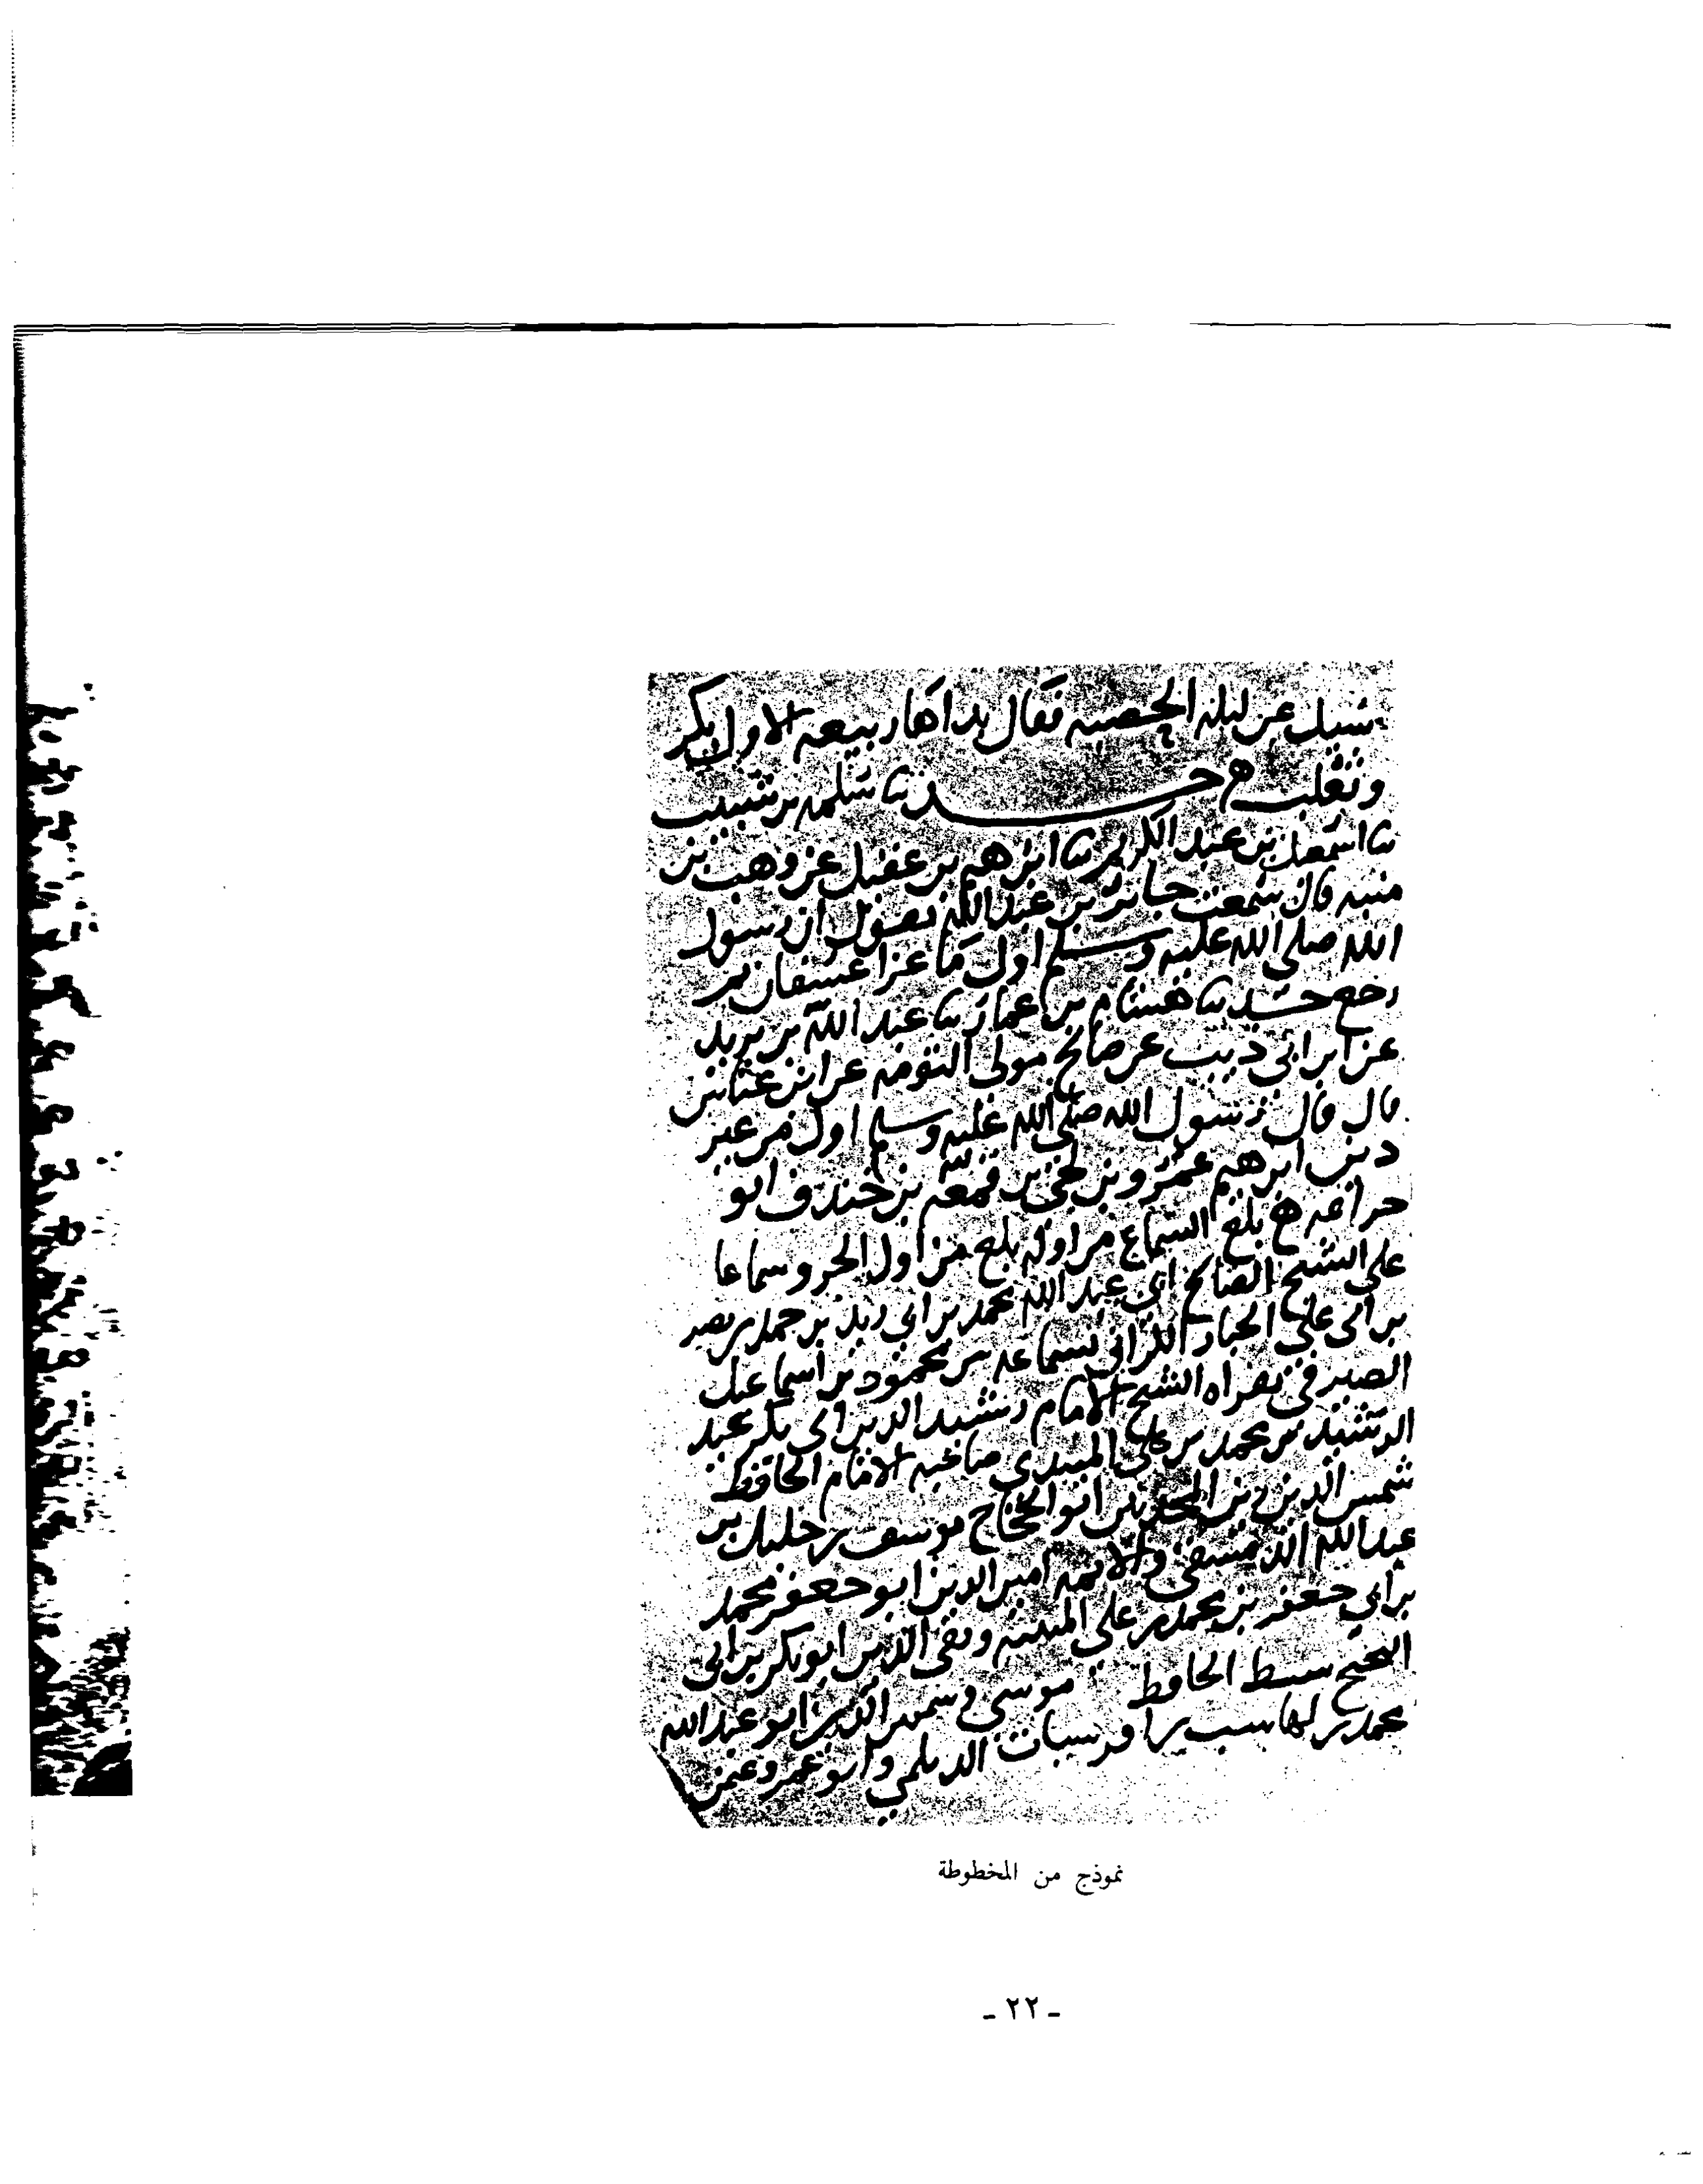 سيل عن ليلة الحصبه فقال بداها ربيعه الاول لبكر
وتغلب ه حدثنا سلمه بن شبيب
ثنا اسمعيل بن عبد الكريم ثنا ابرهيم بن عقيل عن وهب بن
منبه قال سمعت جابر بن عبد الله يقول ان رسول
الله صلى الله عليه وسلم اول ما غزا عسفان ثم
رجع حدثنا هشام بن عمار ثنا عبد الله بن يزيد
عن ابن ابي ذيب عن صالح مولى التومه عن ابن عباس
قال قال رسول الله صلى الله عليه وسلم اول من غير
دين ابرهيم عمرو بن لحي بن قمعه بن خندف ابو
خزاعه بلغ السماع من اوله بلغ من اول الجزو سماعا
على الشيخ الصالح ابي عبد الله محمد بن ابي زيد بن حمد بن نصر
بن ابي على الخباز الكراني بسماعه من محمود بن اسماعيل
الصيرفي بقراه الشيخ الامام رشيد الدين ابي بكر عبد
الرشيد بن محمد بن علي الميبدي صاحبه الامام الحافظ
شمس الدين زين المحدثين ابو الحجاج يوسف بن خليل بن
عبد الله الدمشقي والايمه امير الدين ابو جعفر محمد
بن ابي جعفر بن محمد بن علي وتقي الدين ابو بكر بن ابي
الفتح سبط الحافظ موسى وشمس الدين ابو عبد الله
محمد بن لهاسب بن الديلمي وابو عمرو عثمن
نموذج من المخطوطة
- ٢٢ -